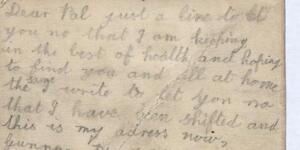 "Dear Pal just a line to let
you no that I am keeping
in the best of health and hoping
to find you and all at home
the same I write to let you no
that I have been shifted and
this is my adress now
Gunner